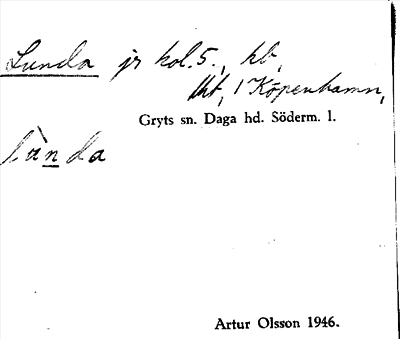 Lunda jr kol. 5., hb,
tht, 1 Köpenhamn,
Gryts sn. Daga hd. Söderm. l.
lùnda
Artur Olsson 1946.